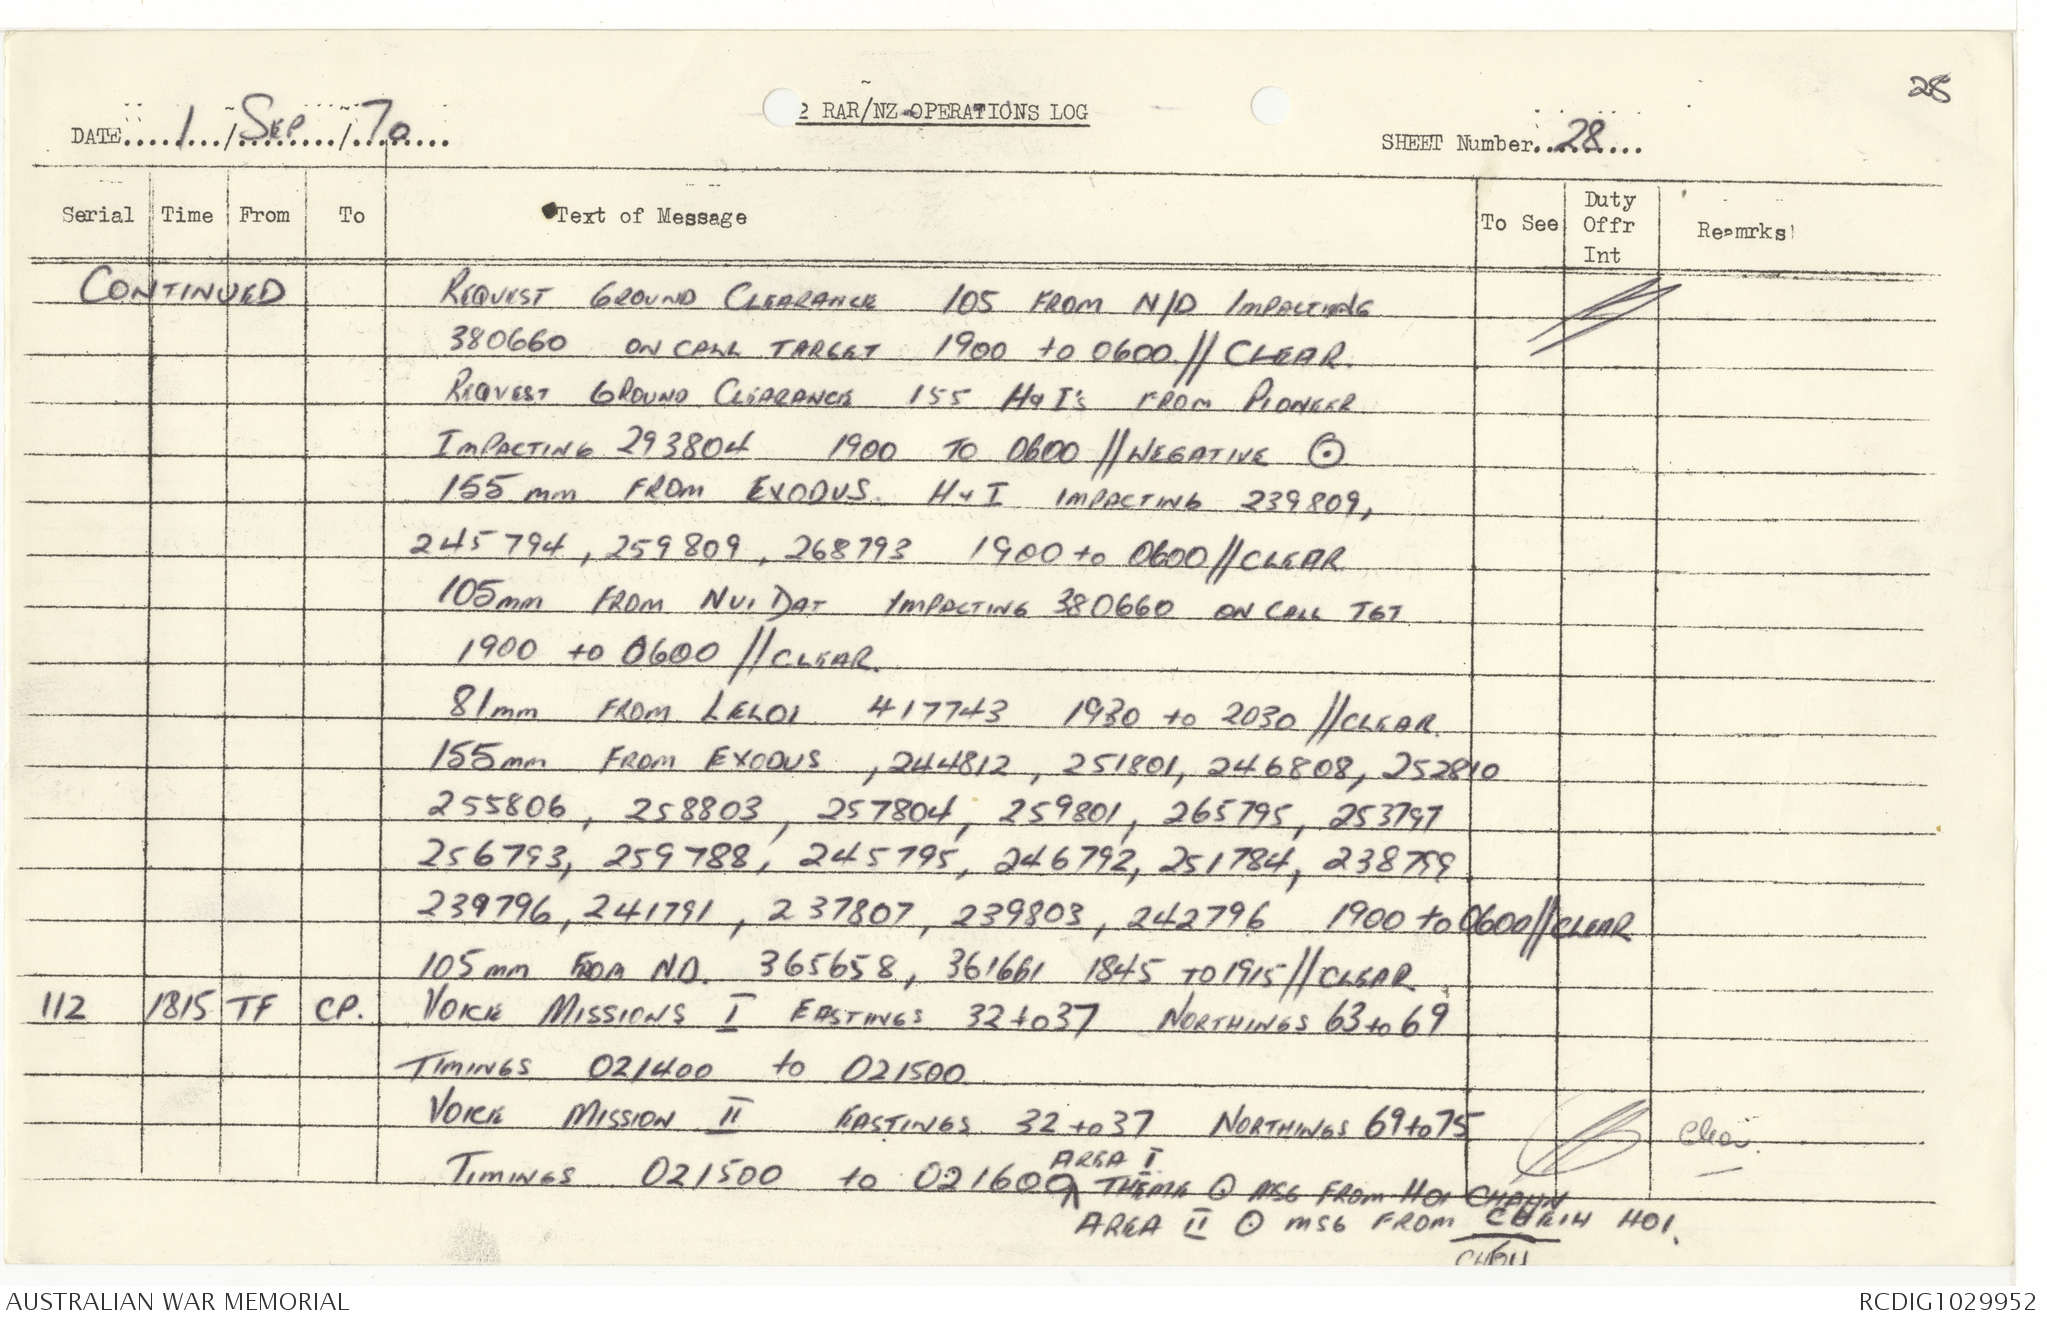 28
2 RAR/NZ OPERATIONS LOG
DATE....1.../Sep/70
SHEET Number..28
Serial Time From To Text of Message To See Duty Offr Int Reamrks
CONTINUED REQUEST GROUND CLEARANCE 105 FROM N/D IMPACTING
380660 ON CALL TARGET 1900 to 0600 // CLEAR.
REQUEST GROUND CLEARANCE 155 H&I's FROM PIONEER
IMPACTING 293804 1900 TO 0600 // NEGATIVE ⊙
155mm FROM EXODUS. H&I IMPACTING 239809,
245794, 259809, 268793 1900 to 0600 // CLEAR
105mm FROM NUI DAT IMPACTING 380660 ON CALL TGT
1900 to 0600 // CLEAR.
81mm FROM LELOI 417743 1930 to 2030 // CLEAR.
155mm FROM EXODUS, 244812, 251801, 246808, 252810
255806, 258803, 257804, 259801, 265795, 253797
256793, 259788, 245795, 246792, 251784, 238799
239796, 241791, 237807, 239803, 242796 1900 to 0600 // CLEAR
105mm FROM ND. 365658, 361661 1845 TO 1915 // CLEAR.
112 1815 TF CP. VOICE MISSIONS I EASTINGS 32 to 37 NORTHINGS 63 to 69
TIMINGS 021400 to 021500
VOICE MISSION II EASTINGS 32 to 37 NORTHINGS 69 to 75
Clear.
AREA I
TIMINGS 021500 to 021600 THEME ⊙ MSG FROM HOI CHAHN
AREA II ⊙ MSG FROM CHEIH HOI.
AUSTRALIAN WAR MEMORIAL
RCDIG1029952